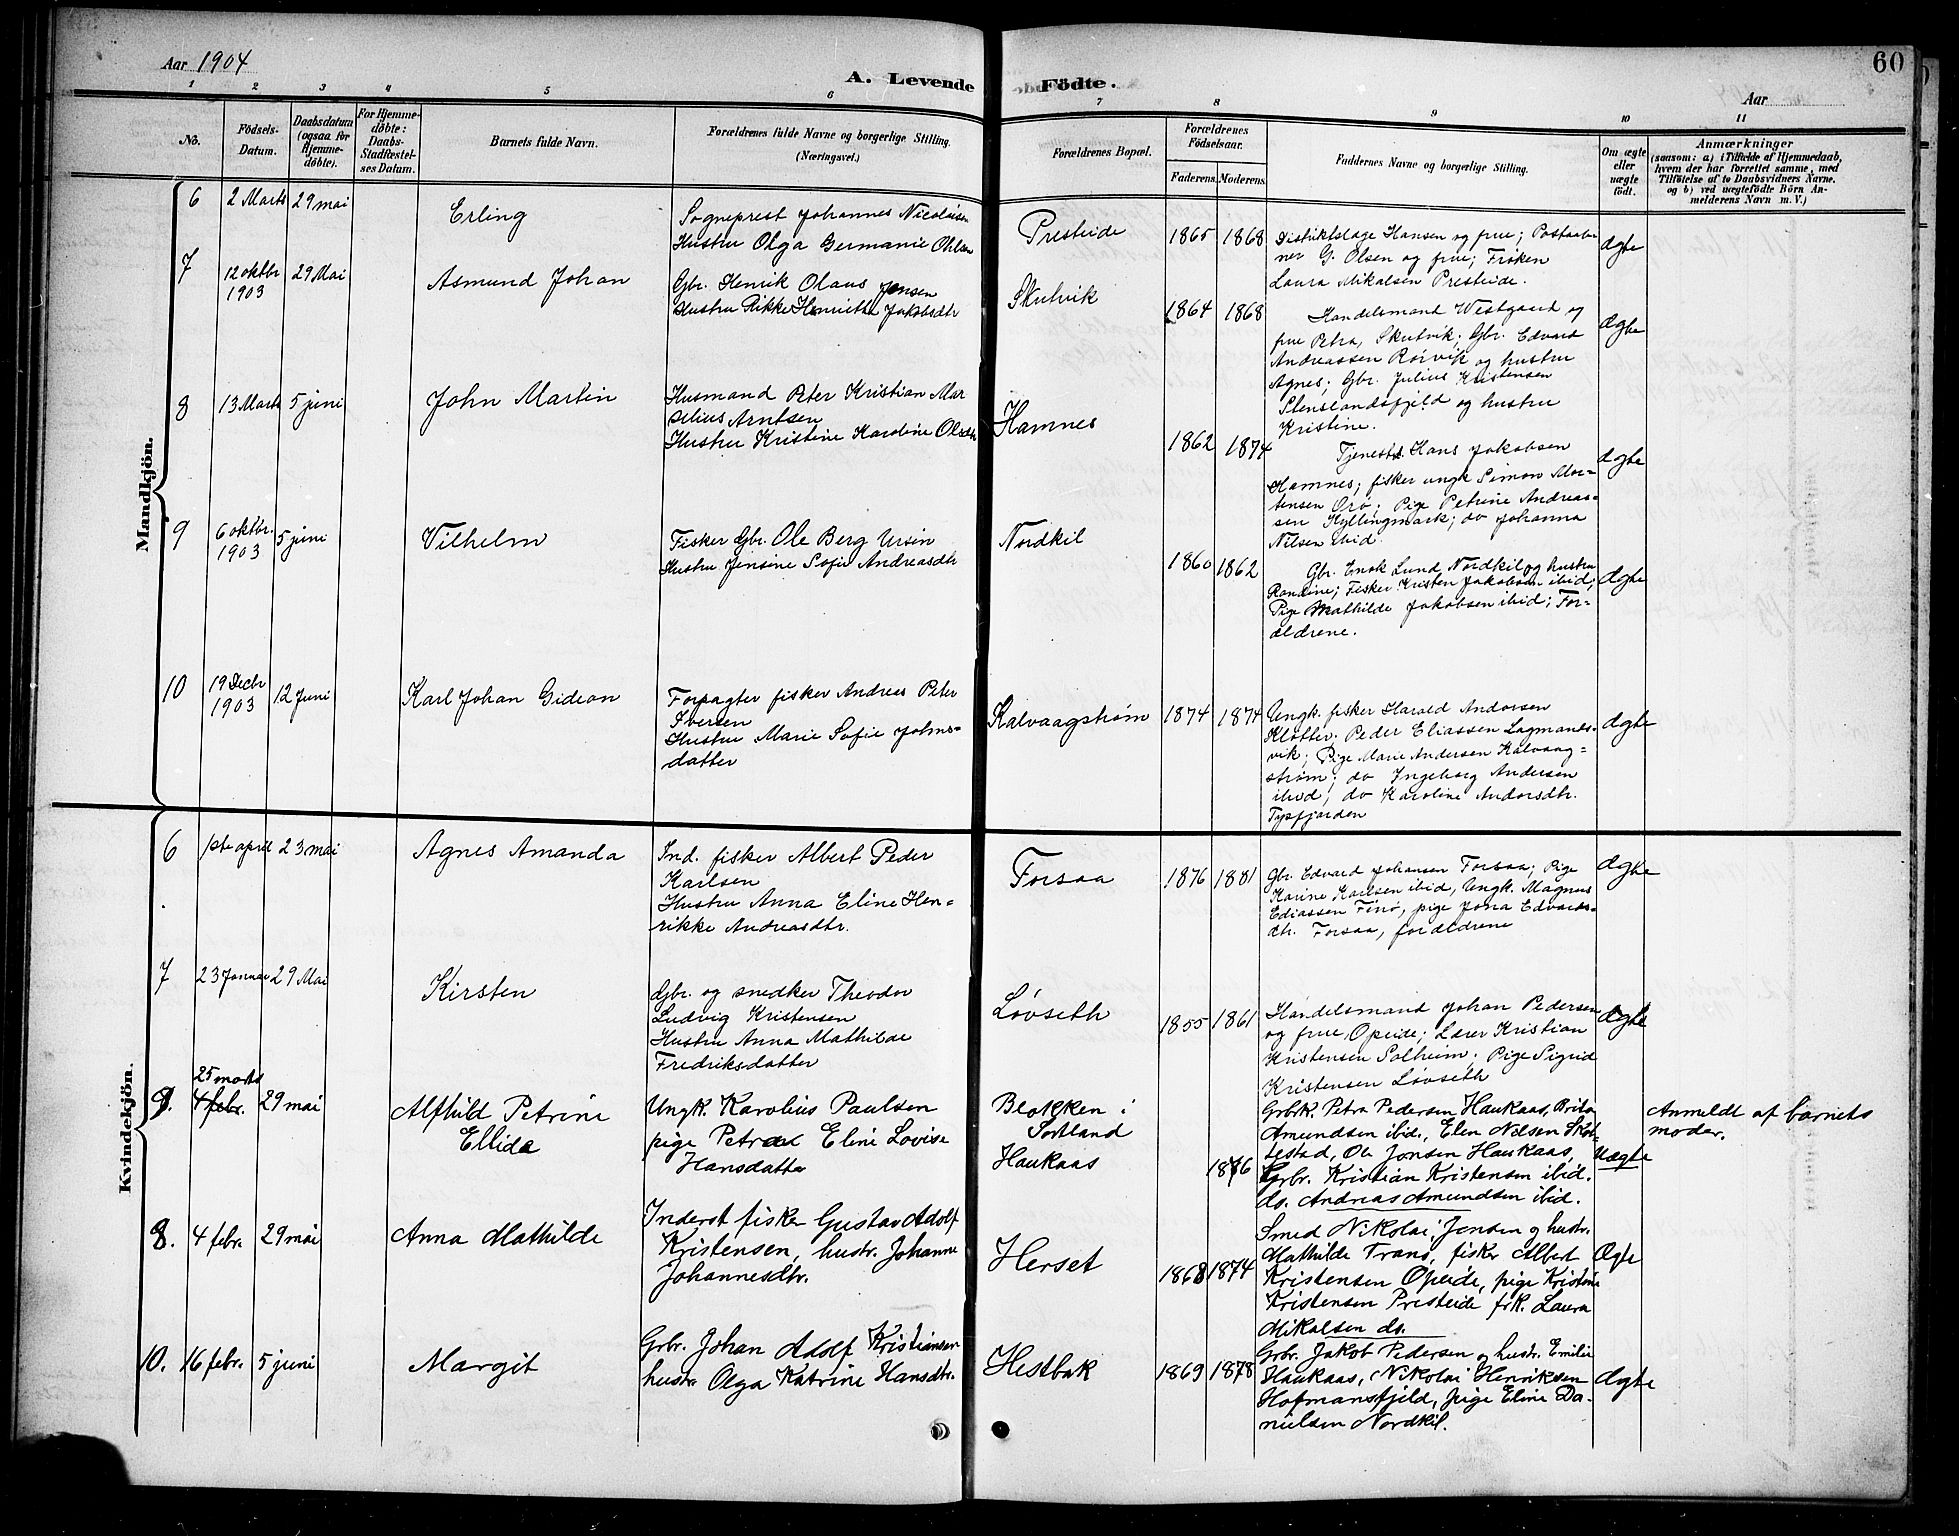 Aar 1904
A. Levende
Födte.
60
Aar
1 2 3 4 5 6 7 8 9 10 11
No.
Födsels-
Datum.
Daabsdatum
(ogsaa for
Hjemme-
döbte).
For Hjemme-
döbte:
Daabs-
Stadfæstel-
ses Datum.
Barnets fulde Navn.
Forældrenes fulde Navne og borgerlige Stilling.
(Næringsvei.)
Forældrenes Bopæl.
Forældrenes
Födselsaar.
Faderens. Moderens.
Faddernes Navne og borgerlige Stilling.
Om ægte
eller
uægte
födt.
Anmærkninger
(saasom: a) i Tilfælde af Hjemmedaab,
hvem der har forrettet samme, med
Tilföielse af to Daabsvidners Navne,
og b) ved uægtefödte Börn An-
melderens Navn m. V.)
Mandkjön.
6 2 Marts 29 mai
Erling
Sogneprest Johannes Nicolaisen
Hustru Olga Germanie Ohlsen
Presteide
1865 1868
Distriktslæge Hansen og frue; Postaab-
ner G. Olsen og frue; Frøken
Laura Mikalsen Presteide.
ægte
7 12 oktbr
1903
29 Mai
Asmund Johan
Gbr. Henrik Olaus Jensen
Hustru Rikke Henrietta Jakobsdtr
Skutvik
1864 1868
Handelsmand Westgaard og
frue Petra, Skutvik; Gbr. Edvard
Andreassen Rørvik og hustru
Agnes; Gbr. Julius Kristensen
Stenslandsfjeld og hustru
Kristine.
ægte
8 13 Marts 5 juni
John Martin
Husmand Peter Kristian Mar
selius Arntsen
Hustru Kristine Karoline Olsdtr
Hamnes
1862 1874
Tjenestd. Hans Jakobsen
Hamnes; fisker ungk Simon Mor-
tensen Orø; Pige Petrine Andreas-
sen Kyllingmark; do Johanna
Nilsen ibid.
ægte
9 6 oktbr.
1903
5 juni
Vilhelm
Fisker Gbr. Ole Berg Ursin
Hustru Jensine Sofie Andreasdtr
Nordkil
1860 1862
Gbr. Enok Lund, Nordkil og hustru
Randine; Fisker Kristen Jakobsen ibid;
Pige Mathilde Jakobsen ibid; For-
ældrene.
ægte
10 19 Decbr
1903
12 Juni
Karl Johan Gideon
Forpagter fisker Andreas Peter
Iversen
Hustru Marie Sofie Johns-
datter
Kalvaagstrøm
1874 1874
Ungk. fisker Harald Andorsen
Kløtter. Peder Eliassen Lagmannes-
vik; Pige Marie Andersen Kalvaag-
strøm; do Ingeborg Andersen
ibid; do Karoline Andorsdtr.
Tysfjorden
ægte
Kvindekjön.
6 1ste april 23 mai
Agnes Amanda
Ind. fisker Albert Peder
Karlsen
Hustru Anna Eline Hen-
rikke Andreasdtr.
Forsaa
1876 1881
Gbr. Edvard Johansen Forsaa; Pige
Karine Karlsen ibid, Ungk. Magnus
Ediassen Finø, pige Jona Edvards-
dtr. Forsaa, forældrene
ægte
7 23 Januar 29 Mai
Kirsten
Gbr. og snedker Theodor
Ludvig Kristensen
Hustru Anna Mathilde
Fredriksdatter
Løvseth
1855 1861
Handelsmand Johan Pedersen
og frue, Opeide; Lærer Kristian
Kristensen Solheim; Pige Sigrid
Kristensen Løvseth
ægte
25 marts
9. 4 febr. 29 mai
Alfhild Petrine
Ellida
Ungk. Karolius Paulsen
pige Petra Eline Lovise
Hansdatter
Blokken i
Sortland
Haukaas
1876
Grbsk. Petra Pedersen Haukaas, Brita
Amundsen ibid., Elen Nilsen Skot-
testad, Ole Jonsen Haukaas,
Grbr. Kristian Kristensen ibid.
ds. Andreas Amundsen ibid.
Uægte
Anmeldt af barnets
moder.
8. 4 febr. 29 mai
Anna Mathilde
Inderst fisker Gustav Adolf
Kristensen, hustr. Johanne
Johannesdtr.
Herset
1868 1874
Smed Nikolai Jensen og hustr.
Mathilde Tranø, fisker Albert
Kristensen Opeide, pige Kristine
Kristensen Presteide frk. Laura
Mikalsen ds.
Ægte
10. 16 febr. 5 juni
Margit
Grbr. Johan Adolf Kristiansen
hustr. Olga Katrine Hansdtr.
Hestbak
1869 1878
Grbr. Jakob Pedersen og hustr. Emilie
Haukaas, Nikolai Henriksen
Hofmansfjeld, pige Eline Da-
nielsen Nordkil.
ægte